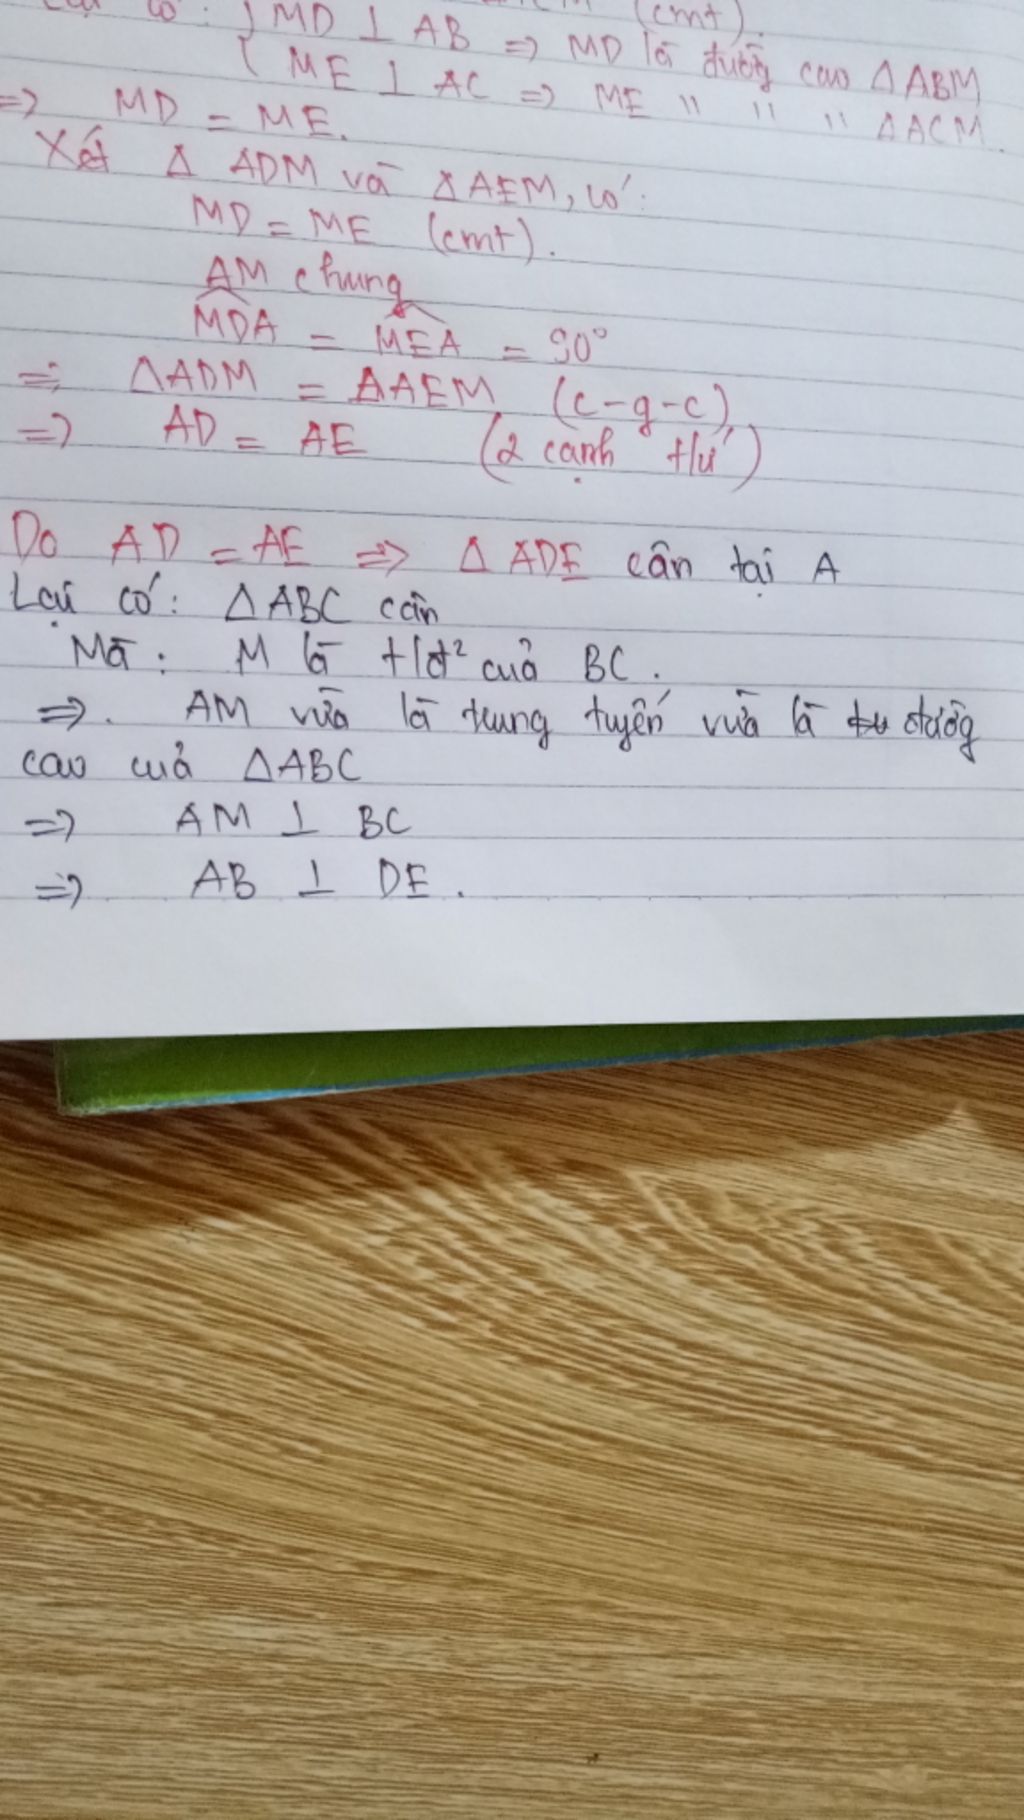 có : { MD ⊥ AB => MD là đường cao ΔABM
ME ⊥ AC => ME " " " ΔACM.
=> MD = ME.
Xét Δ ADM và ΔAEM, có:
MD = ME (cmt).
AM chung
MDA = MEA = 90°
=> ΔADM = ΔAEM (c-g-c)
=> AD = AE (2 cạnh t/ứ)
Do AD = AE => Δ ADE cân tại A
Lại có: ΔABC cân
Mà: M là t/đ² của BC.
=>. AM vừa là trung tuyến vừa là đường
cao của ΔABC
=> AM ⊥ BC
=> AB ⊥ DE.